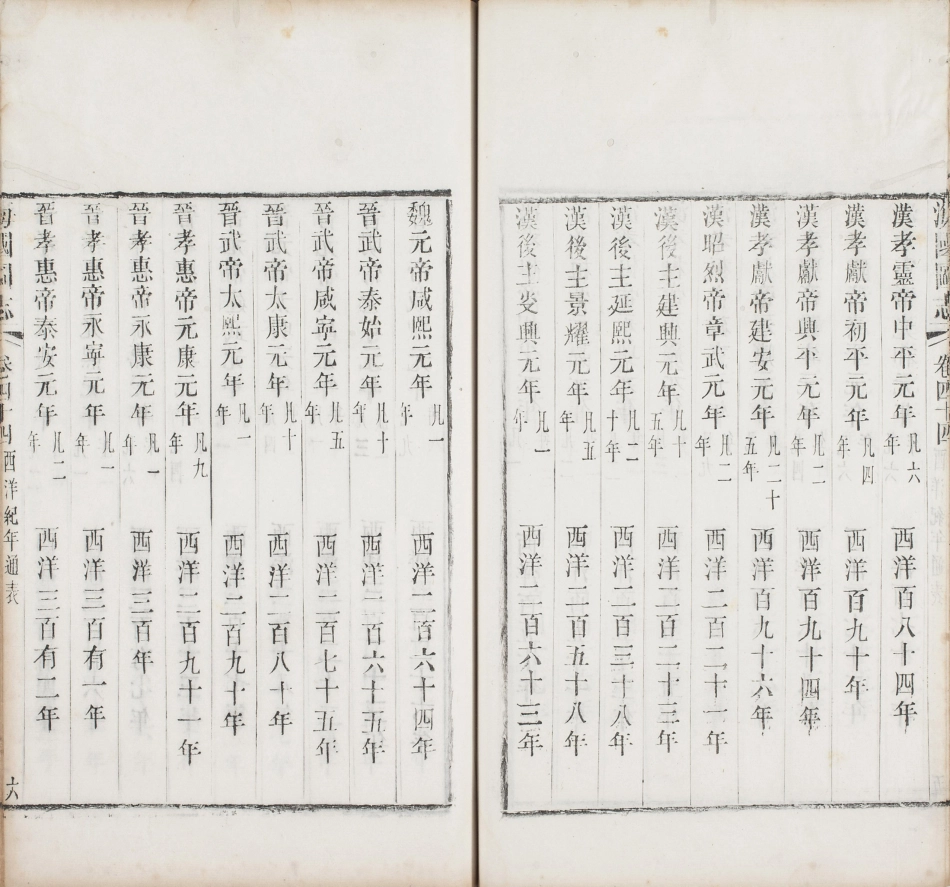 漢孝靈帝中平元年凡六年 西洋百八十四年
漢孝獻帝初平元年凡四年 西洋百九十年
漢孝獻帝興平元年凡二年 西洋百九十四年
漢孝獻帝建安元年凡二十五年 西洋百九十六年
漢昭烈帝章武元年凡二年 西洋二百二十一年
漢後主建興元年凡十五年 西洋二百二十三年
漢後主延熙元年凡二十年 西洋二百三十八年
漢後主景耀元年凡五年 西洋二百五十八年
漢後主炎興元年凡一年 西洋二百六十三年
魏元帝咸熙元年凡一年 西洋二百六十四年
晉武帝泰始元年凡十年 西洋二百六十五年
晉武帝咸寧元年凡五年 西洋二百七十五年
晉武帝太康元年凡十年 西洋二百八十年
晉武帝太熙元年凡一年 西洋二百九十年
晉孝惠帝元康元年凡九年 西洋二百九十一年
晉孝惠帝永康元年凡一年 西洋三百年
晉孝惠帝永寧元年凡一年 西洋三百有一年
晉孝惠帝泰安元年凡二年 西洋三百有二年
海國圖志 卷四十四 西洋紀年通表 六